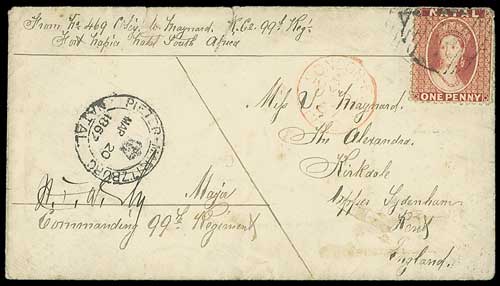 From No 469 Maynard. 99th Regt
Fort Napier Natal South Africa
NATAL
ONE PENNY
PIETERMARITZBURG
MAR 20
1867
NATAL
Miss Maynard.
The Alexandra.
Kirkdale
Upper Sydenham
Kent
England.
Major
Commanding 99th Regiment